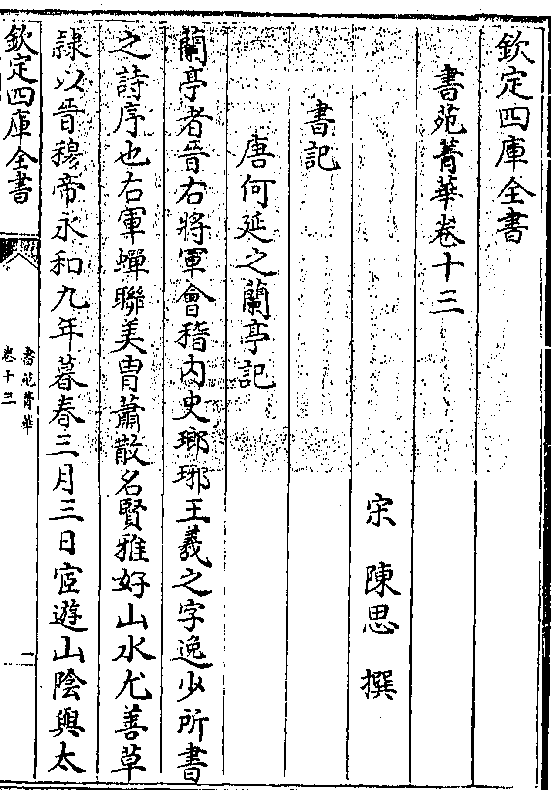 欽定四庫全書
書苑菁華卷十三
宋 陳思 撰
書記
唐何延之蘭亭記
蘭亭者晉右將軍會稽内史瑯琊王羲之字逸少所書
之詩序也右軍蟬聯美胄蕭散名賢雅好山水尤善草
隷以晉穆帝永和九年暮春三月三日宦遊山陰與太
欽定四庫全書
書苑菁華
卷十三
一